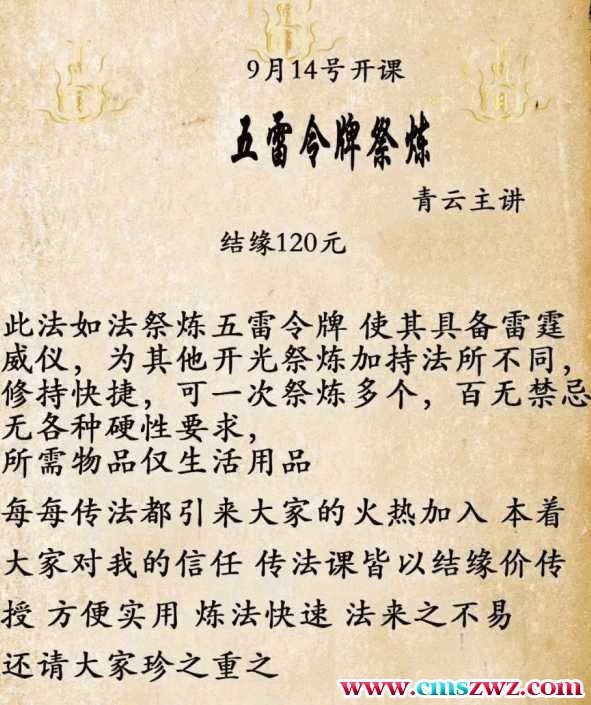 9月14号开课
五雷令牌祭炼
青云主讲
结缘120元
此法如法祭炼五雷令牌 使其具备雷霆
威仪，为其他开光祭炼加持法所不同，
修持快捷，可一次祭炼多个，百无禁忌
无各种硬性要求，
所需物品仅生活用品
每每传法都引来大家的火热加入 本着
大家对我的信任 传法课皆以结缘价传
授 方便实用 炼法快速 法来之不易
还请大家珍之重之
www.cmszwz.com